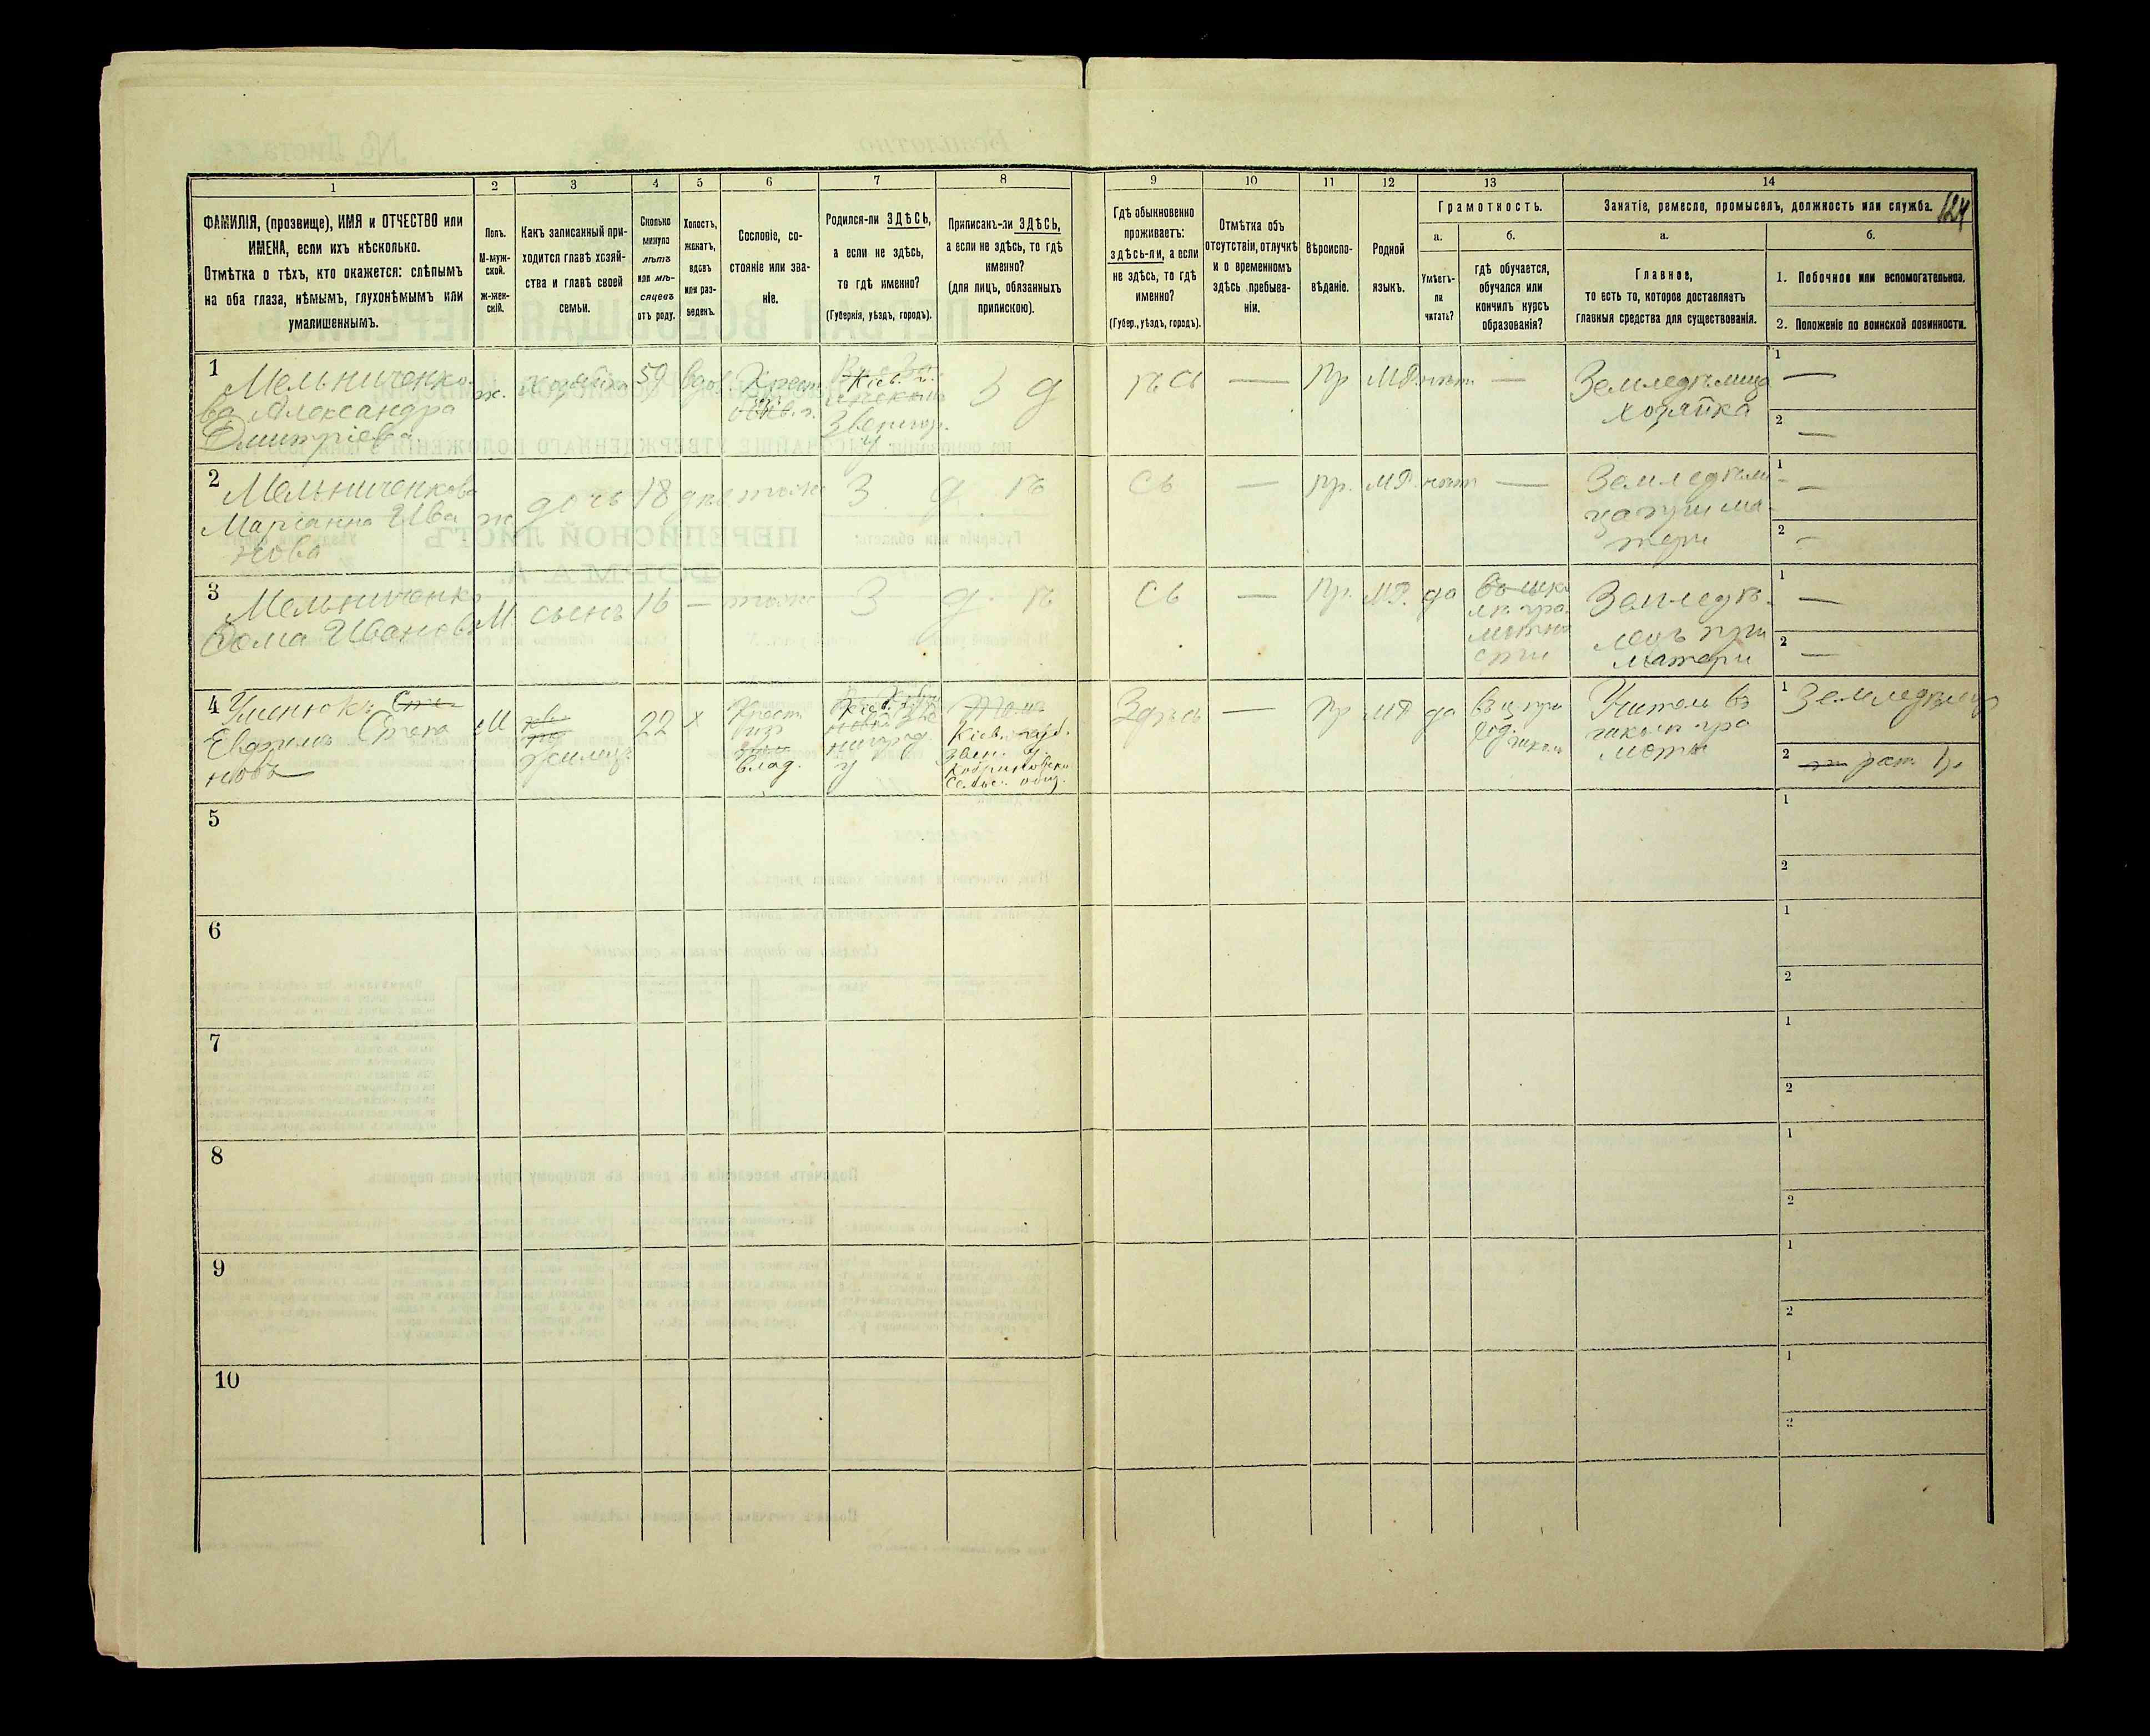 1 2 3 4 5 6 7 8 9 10 11 12 13 14
ФАМИЛІЯ, (прозвище), ИМЯ и ОТЧЕСТВО или
ИМЕНА, если ихъ нѣсколько.
Отмѣтка о тѣхъ, кто окажется: слѣпымъ
на оба глаза, нѣмымъ, глухонѣмымъ или
умалишеннымъ.
Полъ.
М-муж-
ской.
ж-жен-
скій.
Какъ записанный при-
ходится главѣ хозяй-
ства и главѣ своей
семьи.
Сколько
минуло
лѣтъ
или мѣ-
сяцевъ
отъ роду.
Холостъ,
женатъ,
вдовъ
или раз-
веденъ.
Сословіе, со-
стояніе или зва-
ніе.
Родился-ли ЗДѢСЬ,
а если не здѣсь,
то гдѣ именно?
(Губернія, уѣздъ, городъ).
Приписанъ-ли ЗДѢСЬ,
а если не здѣсь, то гдѣ
именно?
(для лицъ, обязанныхъ
припискою).
Гдѣ обыкновенно
проживаетъ:
здѣсь-ли, а если
не здѣсь, то гдѣ
именно?
(Губер., уѣздъ, городъ).
Отмѣтка объ
отсутствіи, отлучкѣ
и о временномъ
здѣсь пребыва-
ніи.
Вѣроиспо-
вѣданіе.
Родной
языкъ.
Грамотность.
а.
Умѣетъ-
ли
читать?
б.
гдѣ обучается,
обучался или
кончилъ курсъ
образованія?
Занятіе, ремесло, промыселъ, должность или служба.
124
а.
Главное,
то есть то, которое доставляетъ
главныя средства для существованія.
б.
1. Побочное или вспомогательное.
2. Положеніе по воинской повинности.
1
Мельниченко-
ва Александра
Дмитріева
ж. хозяйка 59 вдов. Крест.
Кіев. г.
Звенигор.
у
З д ѣ сь — Пр МР нѣт —
Земледѣлица
хозяйка
1 —
2 —
2
Мельниченкова
Маріанна Ива
нова
ж дочь 18 дѣв тоже З д ѣ сь — Пр. МР. нѣт —
Земледѣли
ца при ма-
тери
1 —
2 —
3
Мельниченко
Фома Иванов.
М. сынъ 16 — тоже З д ѣ сь — Пр. МР. да
въ шко
лѣ гра-
мотно
сти
Земледѣ-
лецъ при
матери
1 —
2 —
4
Евфимъ Степа
новъ
М
жилец.
22 х
Крест.
влад.
нигород.
у
Кіев. губ.
Звен. у.
Здѣсь — Пр МР да
въ ц при
ход.
школѣ
Учитель въ
школѣ гра
моты
1 Земледѣлец
2
5
1
2
6
1
2
7
1
2
8
1
2
9
1
2
10
1
2